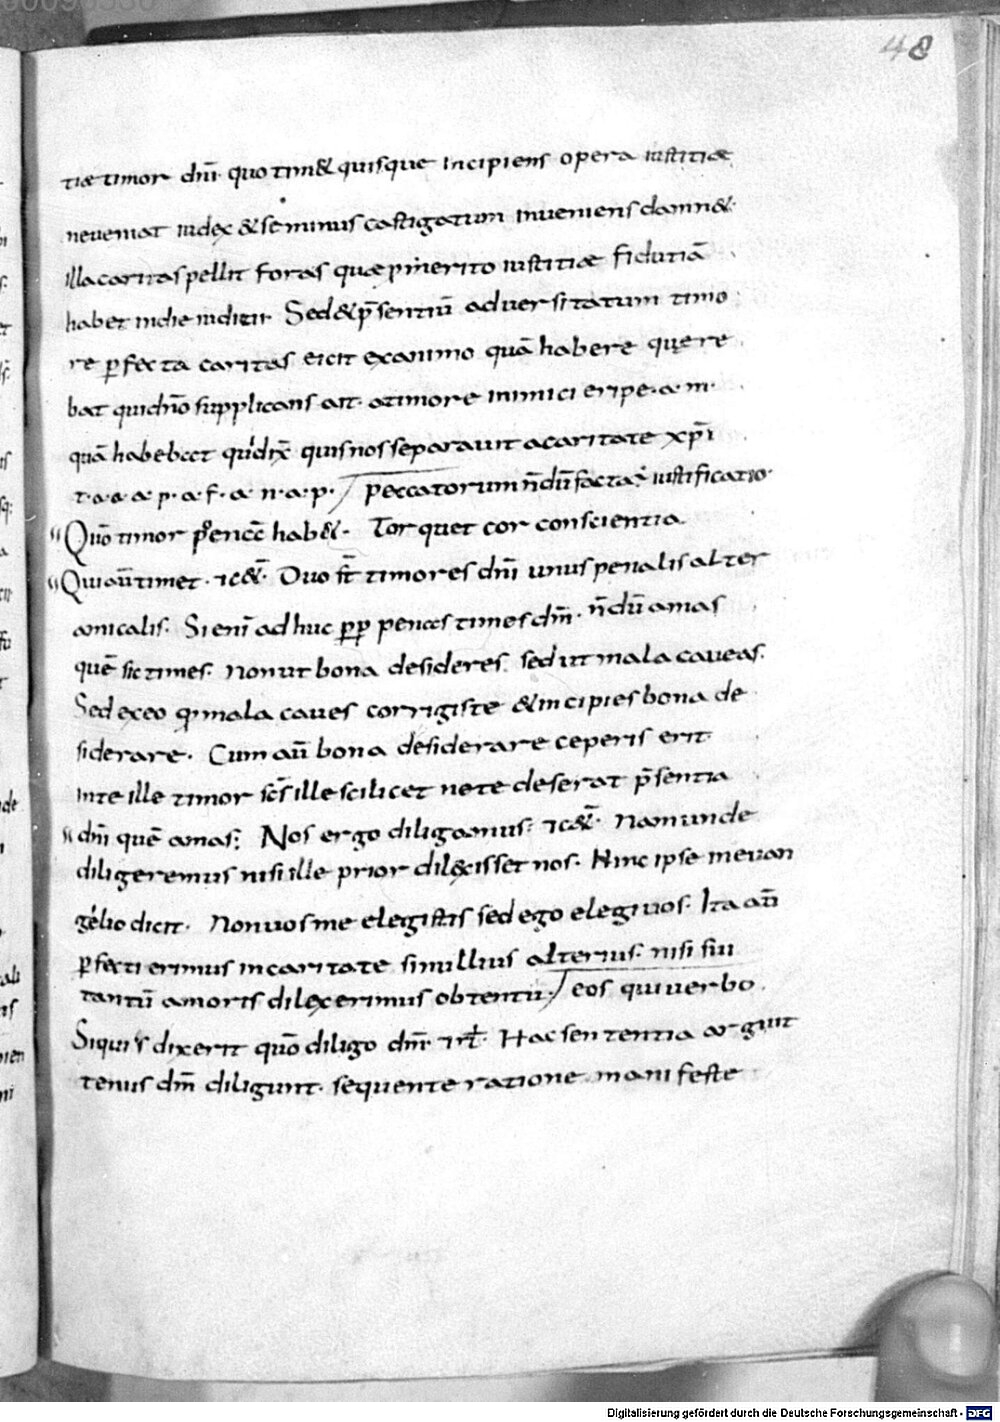 48
tiae timor dn̄i. quo tim& quisque incipiens opera iustitiae
neveniat iudex & se minus castigatum inveniens damn&.
illa caritas pellit foras quae p merito iustitiae fidutiā
habet in die iuditii. Sed & p̄sentiū adversitatum timo
re pfecta caritas eicit ex animo quā habere quere
bat qui dn̄o supplicans ait. a timore inimici eripe. a. m.
quā habebat qui dix̄ quis nos separavit a caritate xp̄i
t. a. a. a. p. a. f. a. n. a. p. / peccatorum n̄dū facta ÷ iustificatio.
Quō timor penā hab&. Torquet cor conscientia.
Qui aū timet. & c&. Duo st̄ timores dn̄i unus penalis alter
amicalis. Si enī adhuc pp penas times dm̄. n̄dū amas
quē sic times. Non ut bona desideres. sed ut mala caveas.
Sed ex eo q mala caves corrigis te & incipies bona de
siderare. Cum aū bona desiderare ceperis erit
in te ille timor sc̄s ille scilicet ne te deserat p̄sentia
dn̄i quē amas; Nos ergo diligamus. & c&. Nam unde
diligeremus nisi ille prior dil&isset nos. Hinc ipse in evan
gelio dicit. Non vos me elegistis sed ego elegi vos. Ita aū
pfecti erimus in caritate si nullius alterius. nisi sui
tantū amoris dilexerimus obtentu. / eos qui verbo.
Siquis dixerit quō diligo dm̄. & rł. Hac sententia arguit
tenus dm̄ diligunt. sequente ratione manifeste
Digitalisierung gefördert durch die Deutsche Forschungsgemeinschaft - DFG